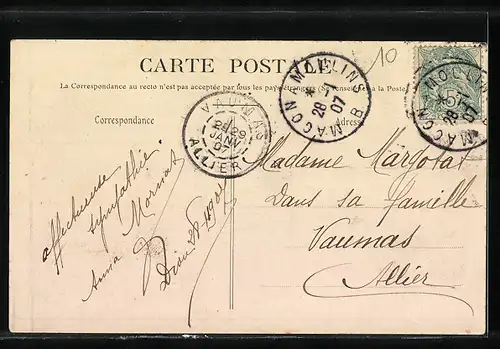 10
CARTE POSTALE
La Correspondance au recto n'est pas acceptée par tous les pays étrangers (Se renseigner à la Poste)
Correspondance
Adresse
VAUMAS
29
JANV
07
ALLIER
MOULINS
28-1
07
MACON B
MOULINS
28-1
07
MACON
5
affectueuse
sympathie.
Anna Mornat
28
Madame Margotat
Dans sa famille
Vaumas
Allier